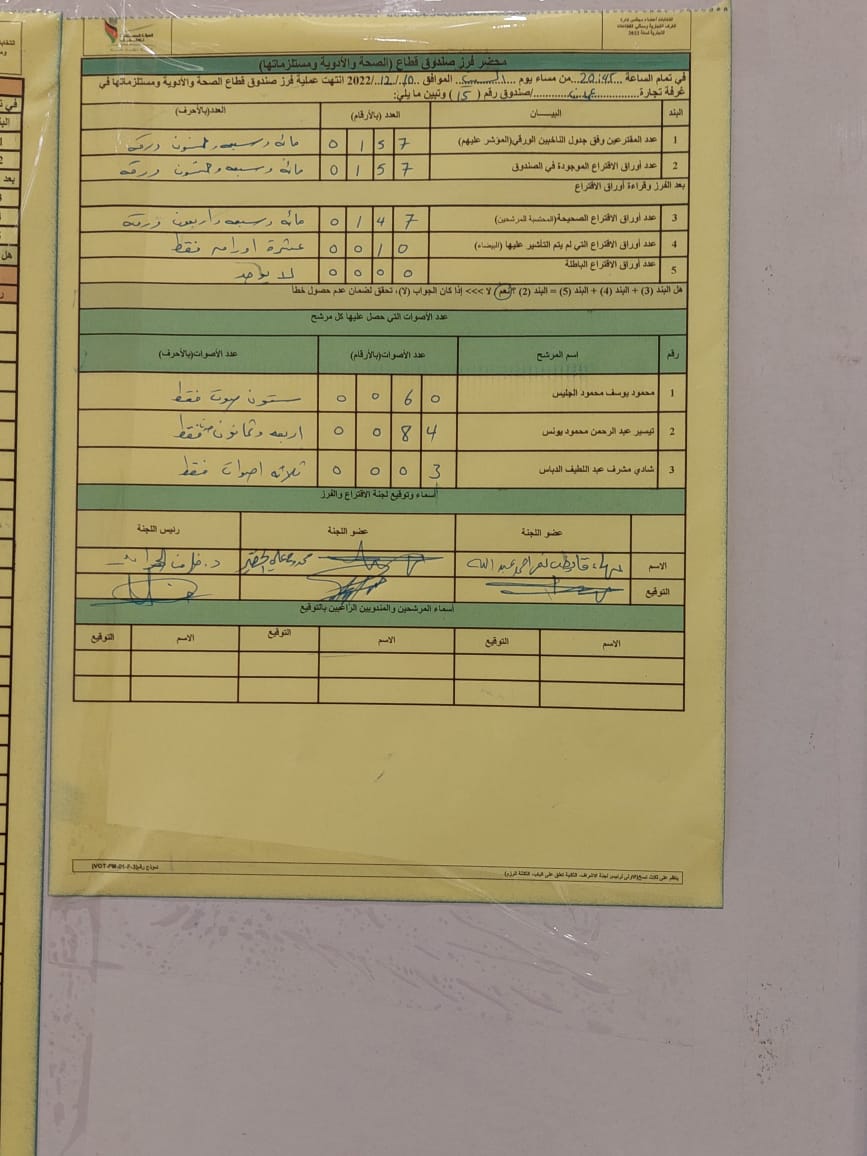 انتخابات أعضاء مجلس إدارة
الغرف التجارية وممثلي القطاعات
التجارية لسنة 2022
محضر فرز صندوق قطاع (الصحة والأدوية ومستلزماتها)
في تمام الساعة ...20:45...من مساء يوم ...السبت... الموافق ..10../..12../2022 انتهت عملية فرز صندوق قطاع الصحة والأدوية ومستلزماتها في
غرفة تجارة ................../صندوق رقم ( 15 ) وتبين ما يلي:
البند البيــــــان العدد (بالأرقام) العدد(بالأحرف)
1 عدد المقترعين وفق جدول الناخبين الورقي(المؤشر عليهم) 0 1 5 7 مائة وسبعه وخمسون ورقة
2 عدد أوراق الاقتراع الموجودة في الصندوق 0 1 5 7 مائة وسبعه وخمسون ورقة
بعد الفرز وقراءة أوراق الاقتراع
3 عدد أوراق الاقتراع الصحيحة(المحتسبة للمرشحين) 0 1 4 7 مائة وسبعه واربعون ورقة
4 عدد أوراق الاقتراع التي لم يتم التأشير عليها (البيضاء) 0 0 1 0 عشرة اوراق فقط
5 عدد أوراق الاقتراع الباطلة 0 0 0 0 لا يوجد
هل البند (3) + البند (4) + البند (5) = البند (2) ؟ نعم/ لا >>> إذا كان الجواب (لا)، تحقق لضمان عدم حصول خطأ
عدد الأصوات التي حصل عليها كل مرشح
رقم اسم المرشح عدد الأصوات(بالأرقام) عدد الأصوات(بالأحرف)
1 محمود يوسف محمود الجليس 0 0 6 0 ستون صوت فقط
2 تيسير عبد الرحمن محمود يونس 0 0 8 4 اربعه وثمانون صوت فقط
3 شادي مشرف عبد اللطيف الدباس 0 0 0 3 ثلاثه اصوات فقط
أسماء وتوقيع لجنة الاقتراع والفرز
عضو اللجنة عضو اللجنة رئيس اللجنة
الاسم
التوقيع
أسماء المرشحين والمندوبين الراغبين بالتوقيع
الاسم التوقيع الاسم التوقيع الاسم التوقيع
ينظم على ثلاث نسخ(الأولى لرئيس لجنة الاشراف، الثانية تعلق على الباب، الثالثة للرزم)